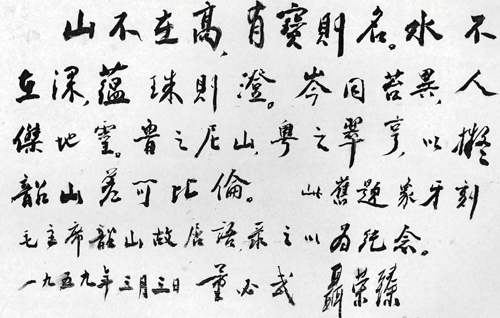 山不在高，有寶則名。水不
在深，蘊珠則澄。岑同苔異，人
傑地靈。魯之尼山，粵之翠亨，以擬
韶山差可比倫。此舊題象牙刻
毛主席韶山故居語，录之以為纪念。
一九五九年三月三日 董必武 聶荣臻